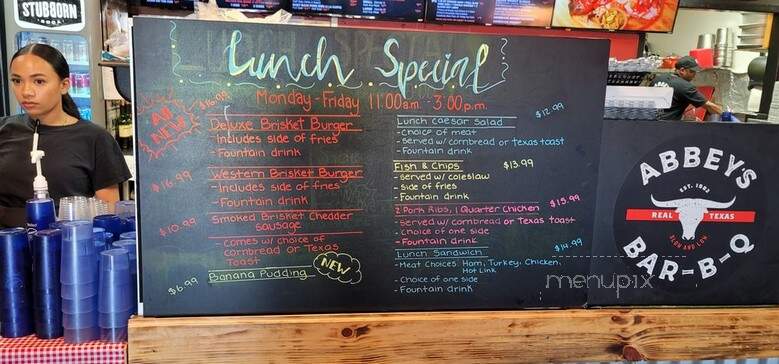 STUBBORN
Lunch Special
Monday-Friday 11:00am.-3:00p.m.
ALL NEW
$16.99
Deluxe Brisket Burger
-Includes side of fries
-Fountain drink
$16.99
Western Brisket Burger
-Includes side of fries
-Fountain drink
$10.99
Smoked Brisket Chedder
Sausage
-comes w/ choice of
cornbread or Texas
Toast
$6.99
Banana Pudding
NEW
Lunch Caesar Salad
$12.99
-Choice of meat
-Served w/ cornbread or Texas toast
-Fountain drink
Fish & Chips
$13.99
-Served w/ coleslaw
-Side of fries
-Fountain drink
2 Pork Ribs, 1 Quarter Chicken
$15.99
-Served w/ cornbread or Texas toast
-Choice of one side
-Fountain drink
Lunch Sandwich
$14.99
-Meat Choices: Ham, Turkey, Chicken,
Hot Link
-Choice of one side
-Fountain drink
ABBEYS
EST. 1992
REAL TEXAS
SLOW AND LOW
BAR-B-Q
menupix